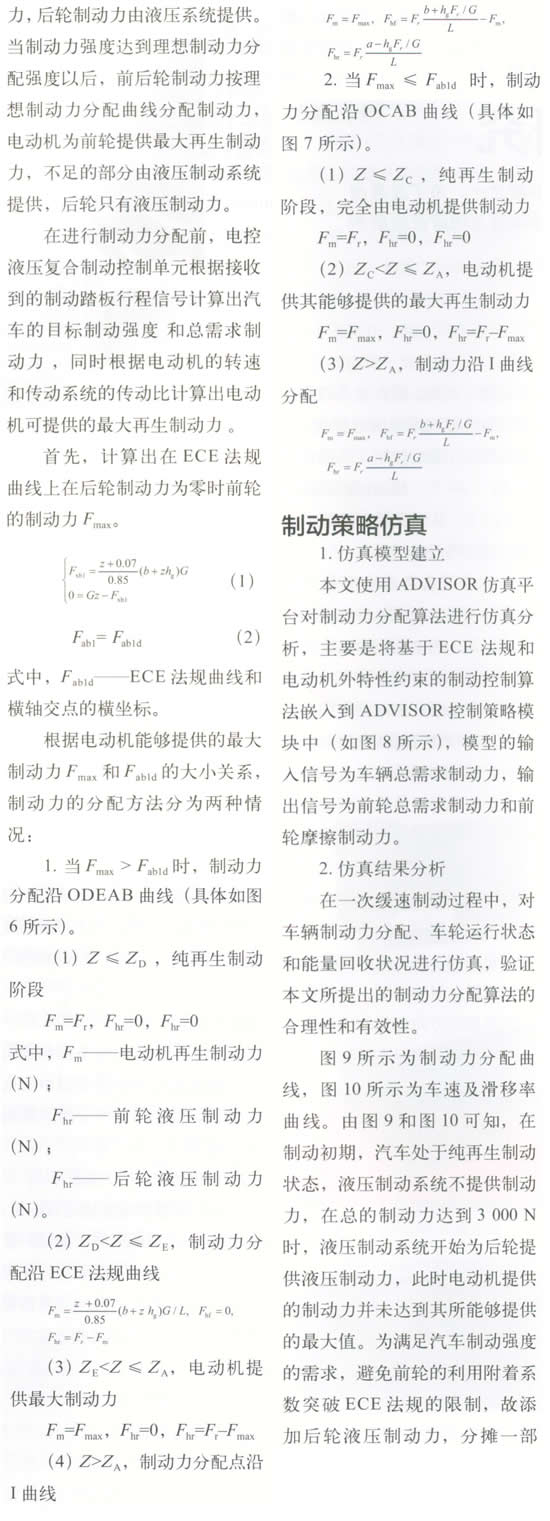 力,后轮制动力由液压系统提供。
当制动力强度达到理想制动力分
配强度以后,前后轮制动力按理
想制动力分配曲线分配制动力,
电动机为前轮提供最大再生制动
力,不足的部分由液压制动系统
提供,后轮只有液压制动力。
在进行制动力分配前,电控
液压复合制动控制单元根据接收
到的制动踏板行程信号计算出汽
车的目标制动强度 和总需求制
动力 ,同时根据电动机的转速
和传动系统的传动比计算出电动
机可提供的最大再生制动力 。
首先,计算出在 ECE 法规
曲线上在后轮制动力为零时前轮
的制动力 Fmax。
{Fxb1 = (z+0.07)/0.85 (b+zhg)G
0=Gz−Fxb1 (1)
Fab1= Fab1d (2)
式中,Fab1d——ECE 法规曲线和
横轴交点的横坐标。
根据电动机能够提供的最大
制动力 Fmax 和 Fab1d 的大小关系,
制动力的分配方法分为两种情
况:
1. 当 Fmax > Fab1d 时,制动力
分配沿 ODEAB 曲线(具体如图
6 所示)。
(1) Z ≤ ZD ,纯再生制动
阶段
Fm=Fr,Fhr=0,Fhr=0
式中,Fm——电动机再生制动力
(N);
Fhr——前轮液压制动力
(N);
Fhr——后轮液压制动力
(N)。
(2) ZD<Z ≤ ZE,制动力分
配沿 ECE 法规曲线
Fm = (z +0.07)/0.85 (b+z hg)G / L, Fhf = 0,
Fhr = Fr − Fm
(3) ZE<Z ≤ ZA,电动机提
供最大制动力
Fm=Fmax,Fhr=0,Fhr=Fr–Fmax
(4) Z>ZA,制动力分配点沿
I 曲线
Fm = Fmax, Fhf = Fr (b+hgFr / G)/L − Fm,
Fhr = Fr (a−hgFr / G)/L
2. 当 Fmax ≤ Fab1d 时,制动
力分配沿 OCAB 曲线(具体如
图 7 所示)。
(1) Z ≤ ZC ,纯再生制动
阶段,完全由电动机提供制动力
Fm=Fr,Fhr=0,Fhr=0
(2) ZC<Z ≤ ZA,电动机提
供其能够提供的最大再生制动力
Fm=Fmax,Fhr=0,Fhr=Fr–Fmax
(3) Z>ZA,制动力沿 I 曲线
分配
Fm = Fmax, Fhf = Fr (b+hgFr / G)/L − Fm,
Fhr = Fr (a−hgFr / G)/L
制动策略仿真
1. 仿真模型建立
本文使用 ADVISOR 仿真平
台对制动力分配算法进行仿真分
析,主要是将基于 ECE 法规和
电动机外特性约束的制动控制算
法嵌入到 ADVISOR 控制策略模
块中(如图 8 所示),模型的输
入信号为车辆总需求制动力,输
出信号为前轮总需求制动力和前
轮摩擦制动力。
2. 仿真结果分析
在一次缓速制动过程中,对
车辆制动力分配、车轮运行状态
和能量回收状况进行仿真,验证
本文所提出的制动力分配算法的
合理性和有效性。
图 9 所示为制动力分配曲
线,图 10 所示为车速及滑移率
曲线。由图 9 和图 10 可知,在
制动初期,汽车处于纯再生制动
状态,液压制动系统不提供制动
力,在总的制动力达到 3 000 N
时,液压制动系统开始为后轮提
供液压制动力,此时电动机提供
的制动力并未达到其所能够提供
的最大值。为满足汽车制动强度
的需求,避免前轮的利用附着系
数突破 ECE 法规的限制,故添
加后轮液压制动力,分摊一部